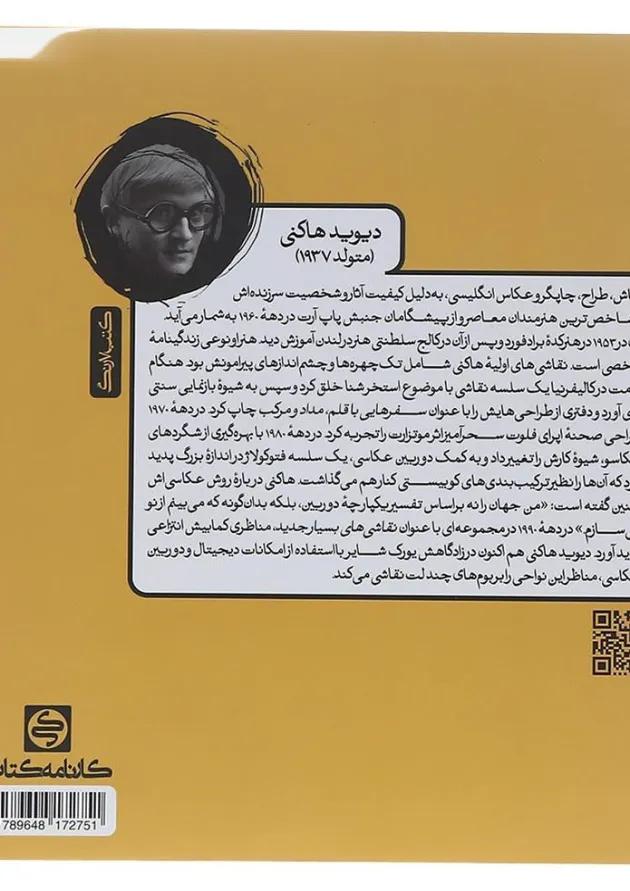 دیوید هاکنی
(متولد ۱۹۳۷)
اش، طراح، چاپگر و عکاس انگلیسی، به دلیل کیفیت آثار و شخصیت سرزنده‌اش
شاخص ترین هنرمندان معاصر و از پیشگامان جنبش پاپ آرت در دههٔ ۱۹۶۰ به شمار می‌آید.
در ۱۹۵۳ در هنرکدهٔ برادفورد و پس از آن در کالج سلطنتی هنر در لندن آموزش دید. هنر او نوعی زندگینامهٔ
خصی است. نقاشی های اولیهٔ هاکنی شامل تک چهره‌ها و چشم اندازهای پیرامونش بود. هنگام
مت در کالیفرنیا یک سلسه نقاشی با موضوع استخر شنا خلق کرد و سپس به شیوهٔ بازنمایی سنتی
ی آورد و دفتری از طراحی هایش را با عنوان سفرهایی با قلم، مداد و مرکب چاپ کرد. در دههٔ ۱۹۷۰
راحی صحنهٔ اپرای فلوت سحرآمیز اثر موتزارت را تجربه کرد. در دههٔ ۱۹۸۰ با بهره‌گیری از شگردهای
کاسو، شیوهٔ کارش را تغییر داد و به کمک دوربین عکاسی، یک سلسه فتوکولاژ در اندازهٔ بزرگ پدید
رد که آن‌ها را نظیر ترکیب‌بندی‌های کوبیستی کنار هم می‌گذاشت. هاکنی دربارهٔ روش عکاسی اش
نین گفته است: «من جهان را نه براساس تفسیر یکپارچهٔ دوربین، بلکه بدان‌گونه که می‌بینم از نو
ی سازم.» در دههٔ ۱۹۹۰ در مجموعه‌ای با عنوان نقاشی های بسیار جدید، مناظری کمابیش انتزاعی
ید آورد. دیوید هاکنی هم اکنون در زادگاهش یورک شایر با استفاده از امکانات دیجیتال و دوربین
کاسی، مناظر این نواحی را بر بوم‌های چند لت نقاشی می‌کند.
کتب لارنگ
کارنامه کتاب
789648 172751